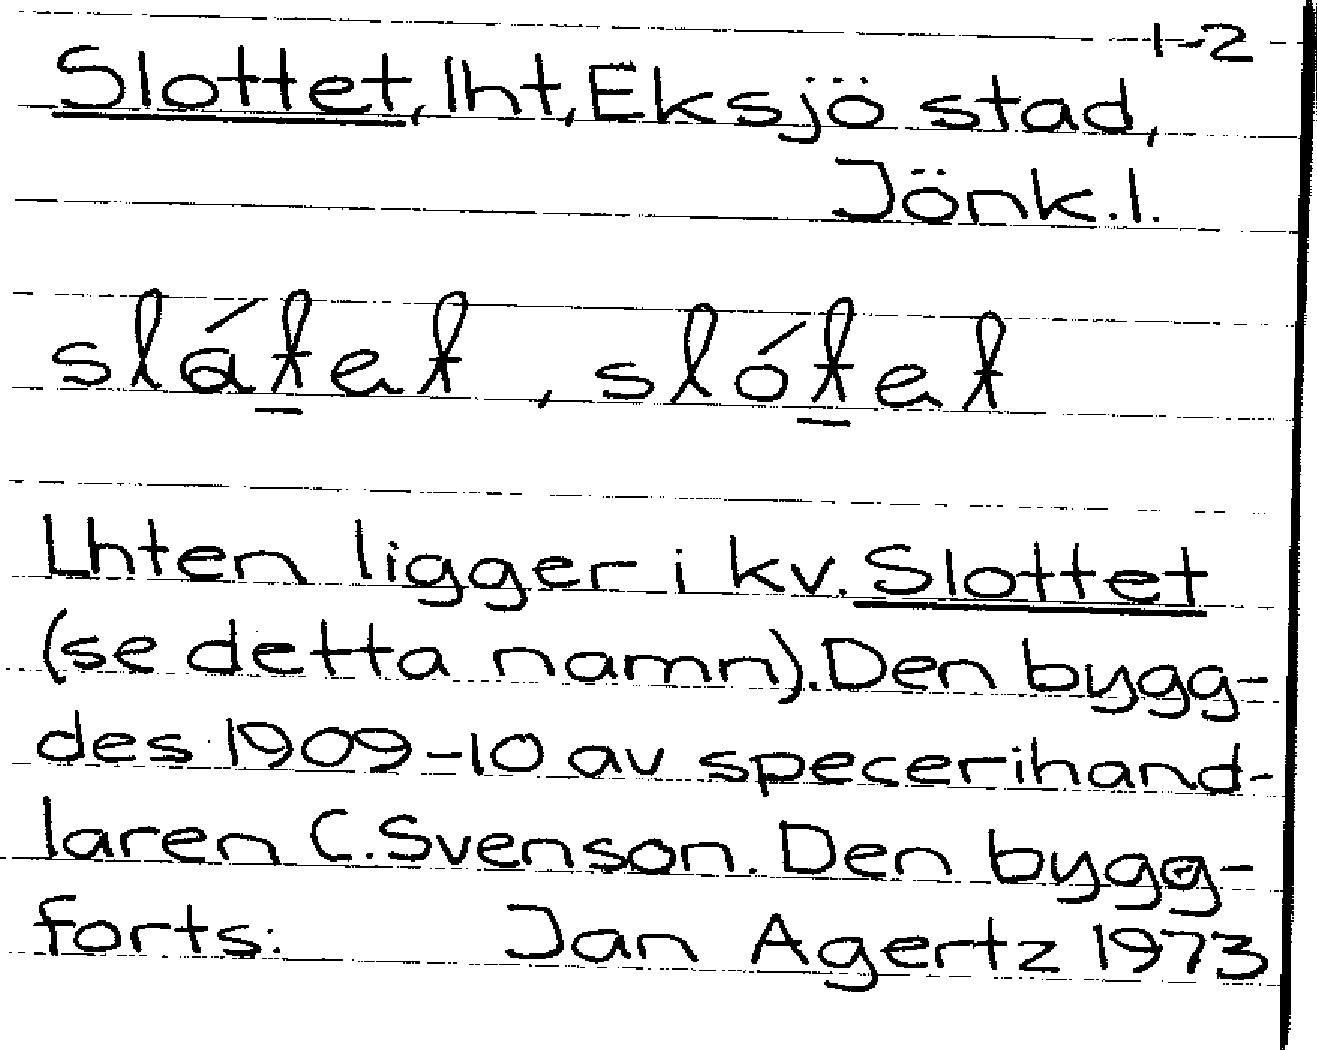 1-2
Slottet, lht, Eksjö stad,
Jönk.l.
slátet, slótet
Lhten ligger i kv. Slottet
(se detta namn). Den bygg-
des 1909-10 av specerihand-
laren C. Svenson. Den bygg-
forts: Jan Agertz 1973